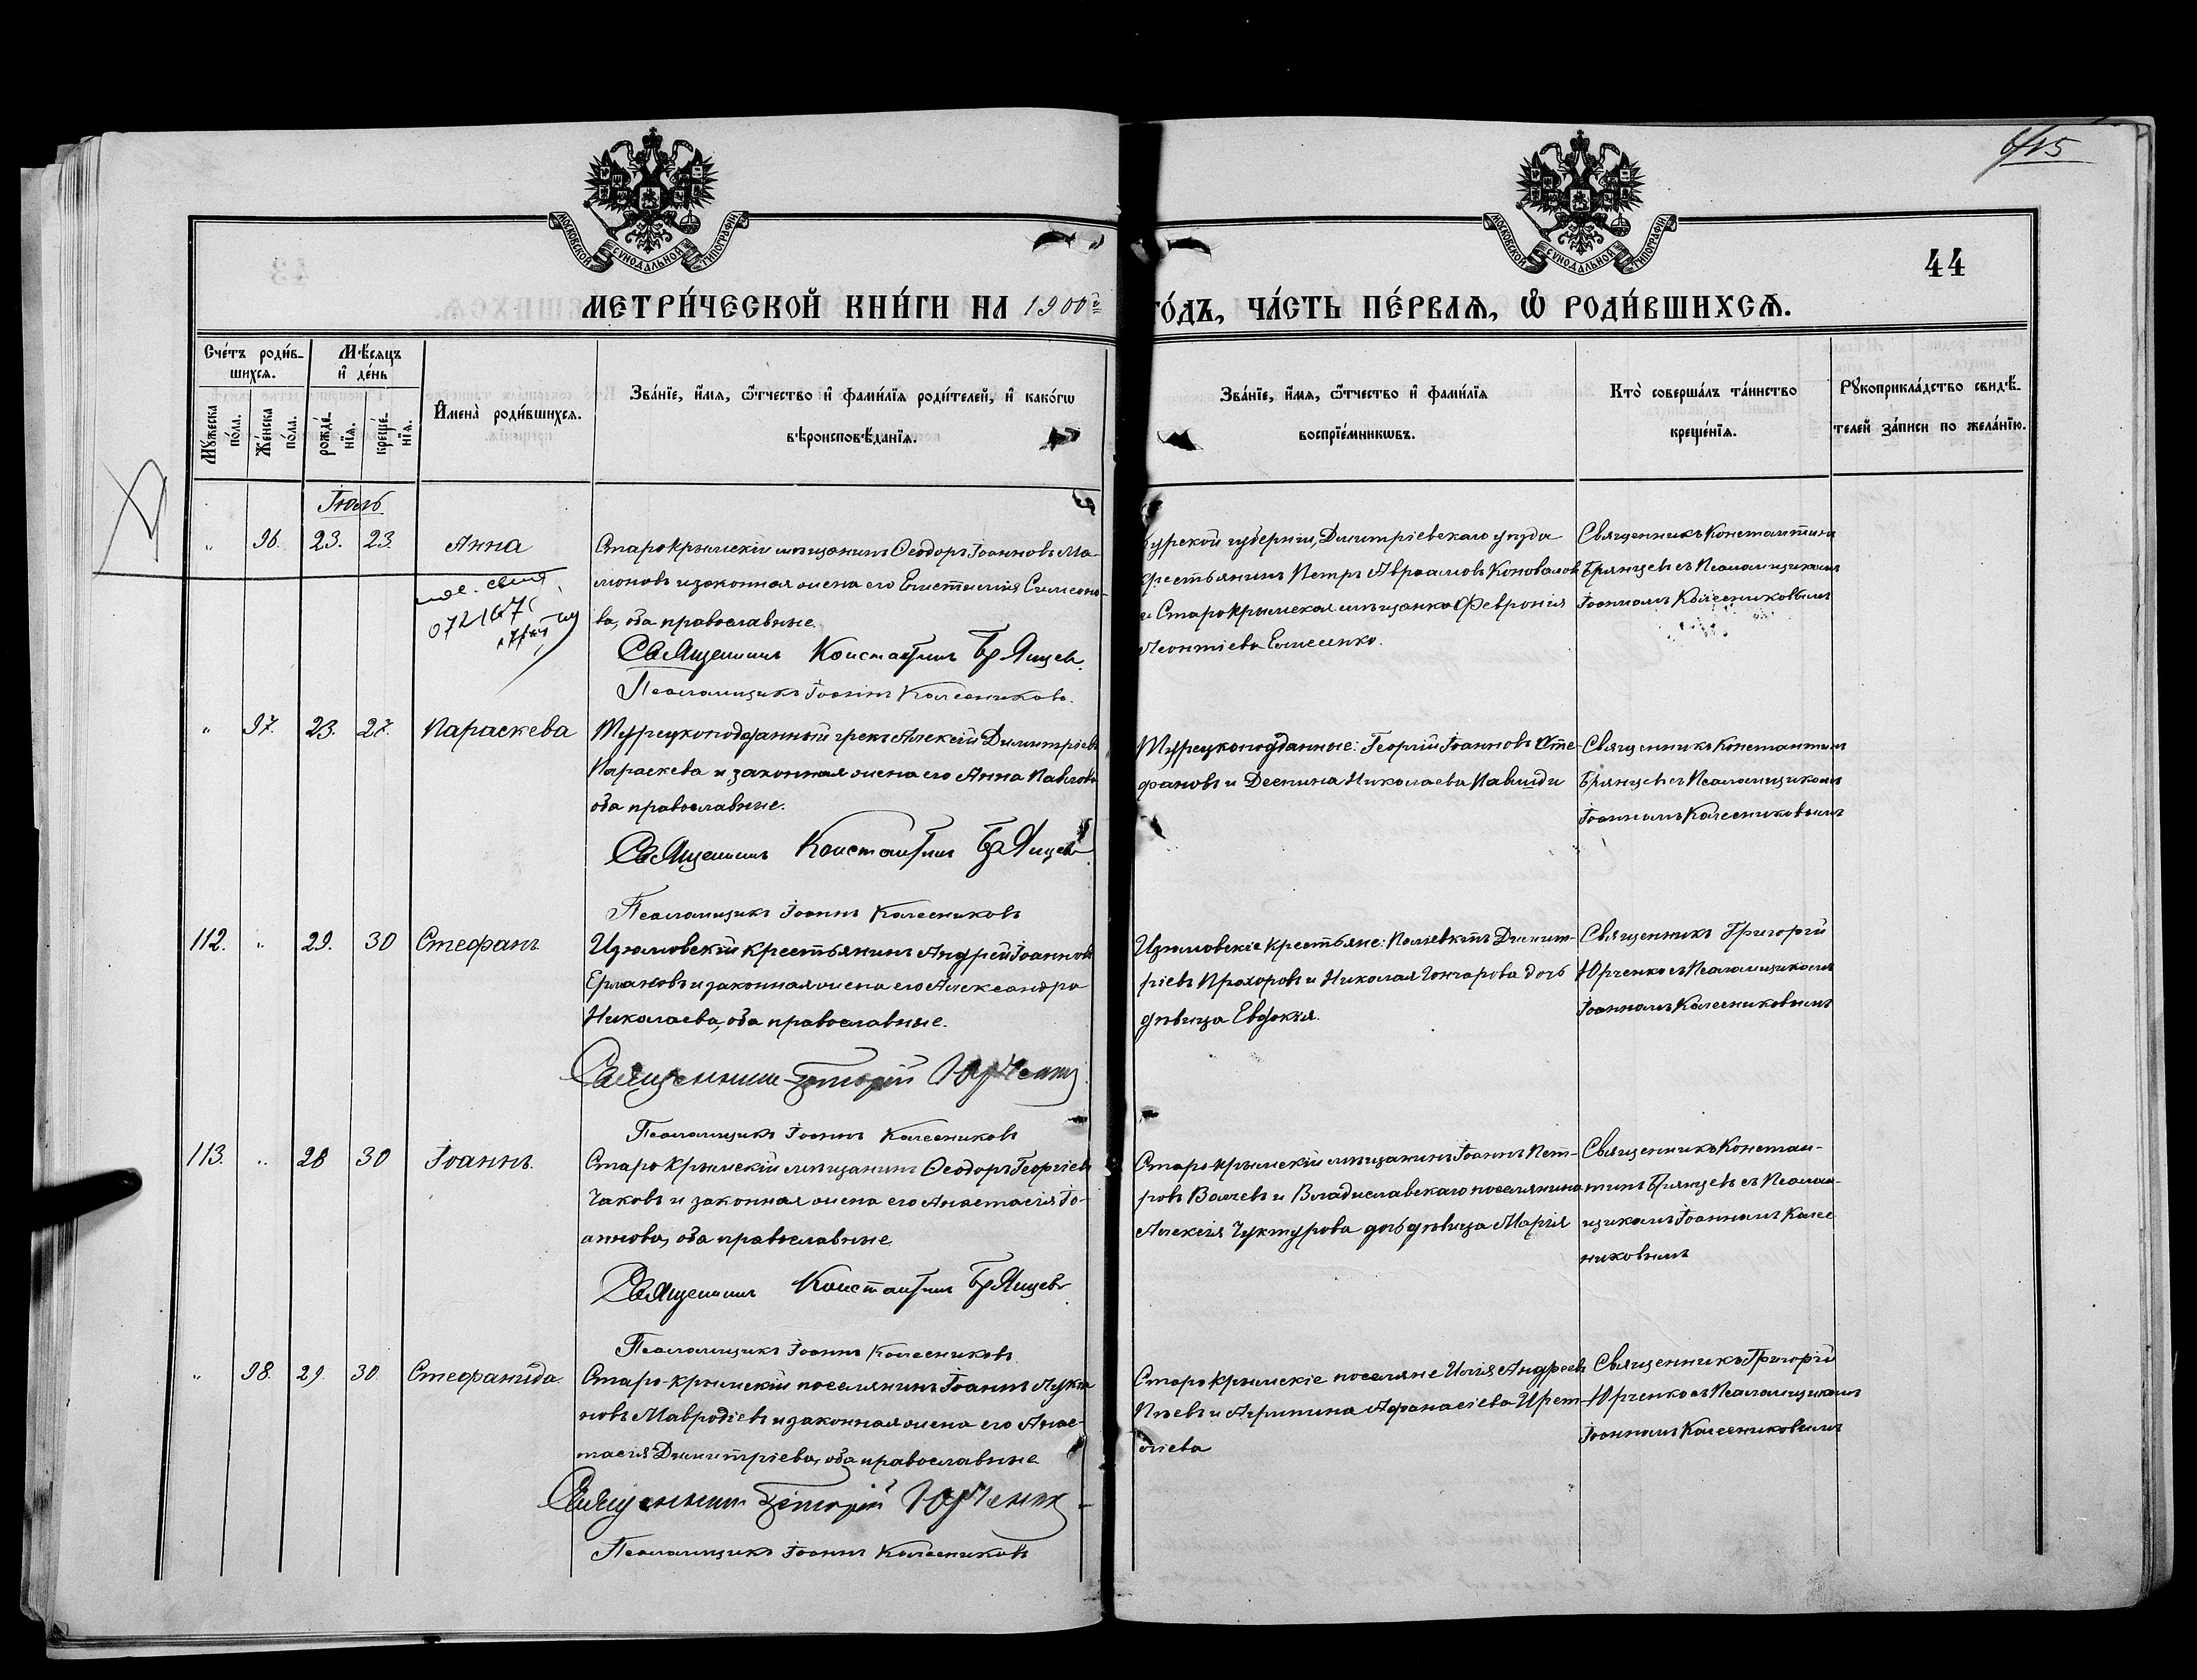 415
МОСКОВСКОЙ СУНОДАЛЬНОЙ ТИПОГРАФІИ
МОСКОВСКОЙ СУНОДАЛЬНОЙ ТИПОГРАФІИ
44
МЕТРИ́ЧЕСКОЙ КНИ́ГИ НА 1900й ГО́ДЪ, ЧА́СТЬ ПЕ́РВАѦ, Ѽ РОДИ́ВШИХСѦ.
Сче́тъ роди́в-
шихсѧ.
Мꙋжеска по́ла.
Же́нска по́ла.
Мѣ́сѧцъ
и҆ де́нь
рожде́-
нїѧ.
креще́-
нїѧ.
И҆мена̀ роди́вшихсѧ.
Зва́нїе, и҆́мѧ, ѻ҆́тчество и҆ фами́лїѧ роди́телей, и҆ како́гѡ
вѣроисповѣ́данїѧ.
Зва́нїе, и҆́мѧ, ѻ҆́тчество и҆ фами́лїѧ
воспрїе́мникѡвъ.
Кто̀ соверша́лъ та́инство
креще́нїѧ.
Рꙋкоприкла́дство свидѣ́-
телей за́писи по жела́нїю.
Іюль
" 96. 23. 23. Анна
Старокрымскій мѣщанинъ Ѳеодоръ Іоанновъ Ма-
моновъ и законная жена его Евстолія Симеоно-
ва, оба православные.
Священникъ Константинъ Брянцевъ.
Псаломщикъ Іоаннъ Колесниковъ.
Курской губерніи, Димитріевскаго уѣзда
крестьянинъ Петръ Авраамовъ Коноваловъ
и Старокрымская мѣщанка Февронія
Леонтіева Елисеенко.
Священникъ Константинъ
Брянцевъ съ Псаломщикомъ
Іоанномъ Колесниковымъ
" 97. 23. 27. Параскева
Турецкоподданный грекъ Алексій Димитріевъ
Параскева и законная жена его Анна Павлова
оба православные.
Священникъ Константинъ Брянцевъ
Псаломщикъ Іоаннъ Колесниковъ
Турецкоподданные: Георгій Іоанновъ Сте-
фановъ и Деспина Николаева Павлиди
Священникъ Константинъ
Брянцевъ съ Псаломщикомъ
Іоанномъ Колесниковымъ
112. " 29. 30 Стефанъ
Изюмовскій крестьянинъ Андрей Іоанновъ
Ермаковъ и законная жена его Александра
Николаева, оба православные.
Священникъ Григорій Юрченко
Псаломщикъ Іоаннъ Колесниковъ
Изюмовскіе крестьяне: Поліевктъ Димит-
ріевъ Прохоровъ и Николая Гончарова дочь
дѣвица Евдокія.
Священникъ Григорій
Юрченко съ Псаломщикомъ
Іоанномъ Колесниковымъ
113. " 28 30 Іоаннъ.
Старо-Крымскій мѣщанинъ Ѳеодоръ Георгіевъ
Чаковъ и законная жена его Анастасія Іо-
аннова, оба православные
Священникъ Константинъ Брянцевъ
Псаломщикъ Іоаннъ Колесниковъ
Старо-крымскій мѣщанинъ Іоаннъ Пет-
ровъ Волчевъ и Владиславскаго поселянина
Алексія Чуктурова дочь дѣвица Марія
Священникъ Констан-
тинъ Брянцевъ съ Псалом-
щикомъ Іоанномъ Колес-
никовымъ
" 98. 29. 30. Стефанида
Старо-крымскій поселянинъ Іоаннъ Лукіа
новъ Мавродіевъ и законная жена его Анас-
тасія Димитріева, оба православные
Священникъ Григорій Юрченко
Псаломщикъ Іоаннъ Колесниковъ
Старокрымскіе поселяне Илія Андреевъ
и Агрипина Афанасіева
Священникъ Григорій
Юрченко съ Псаломщикомъ
Іоанномъ Колесниковымъ